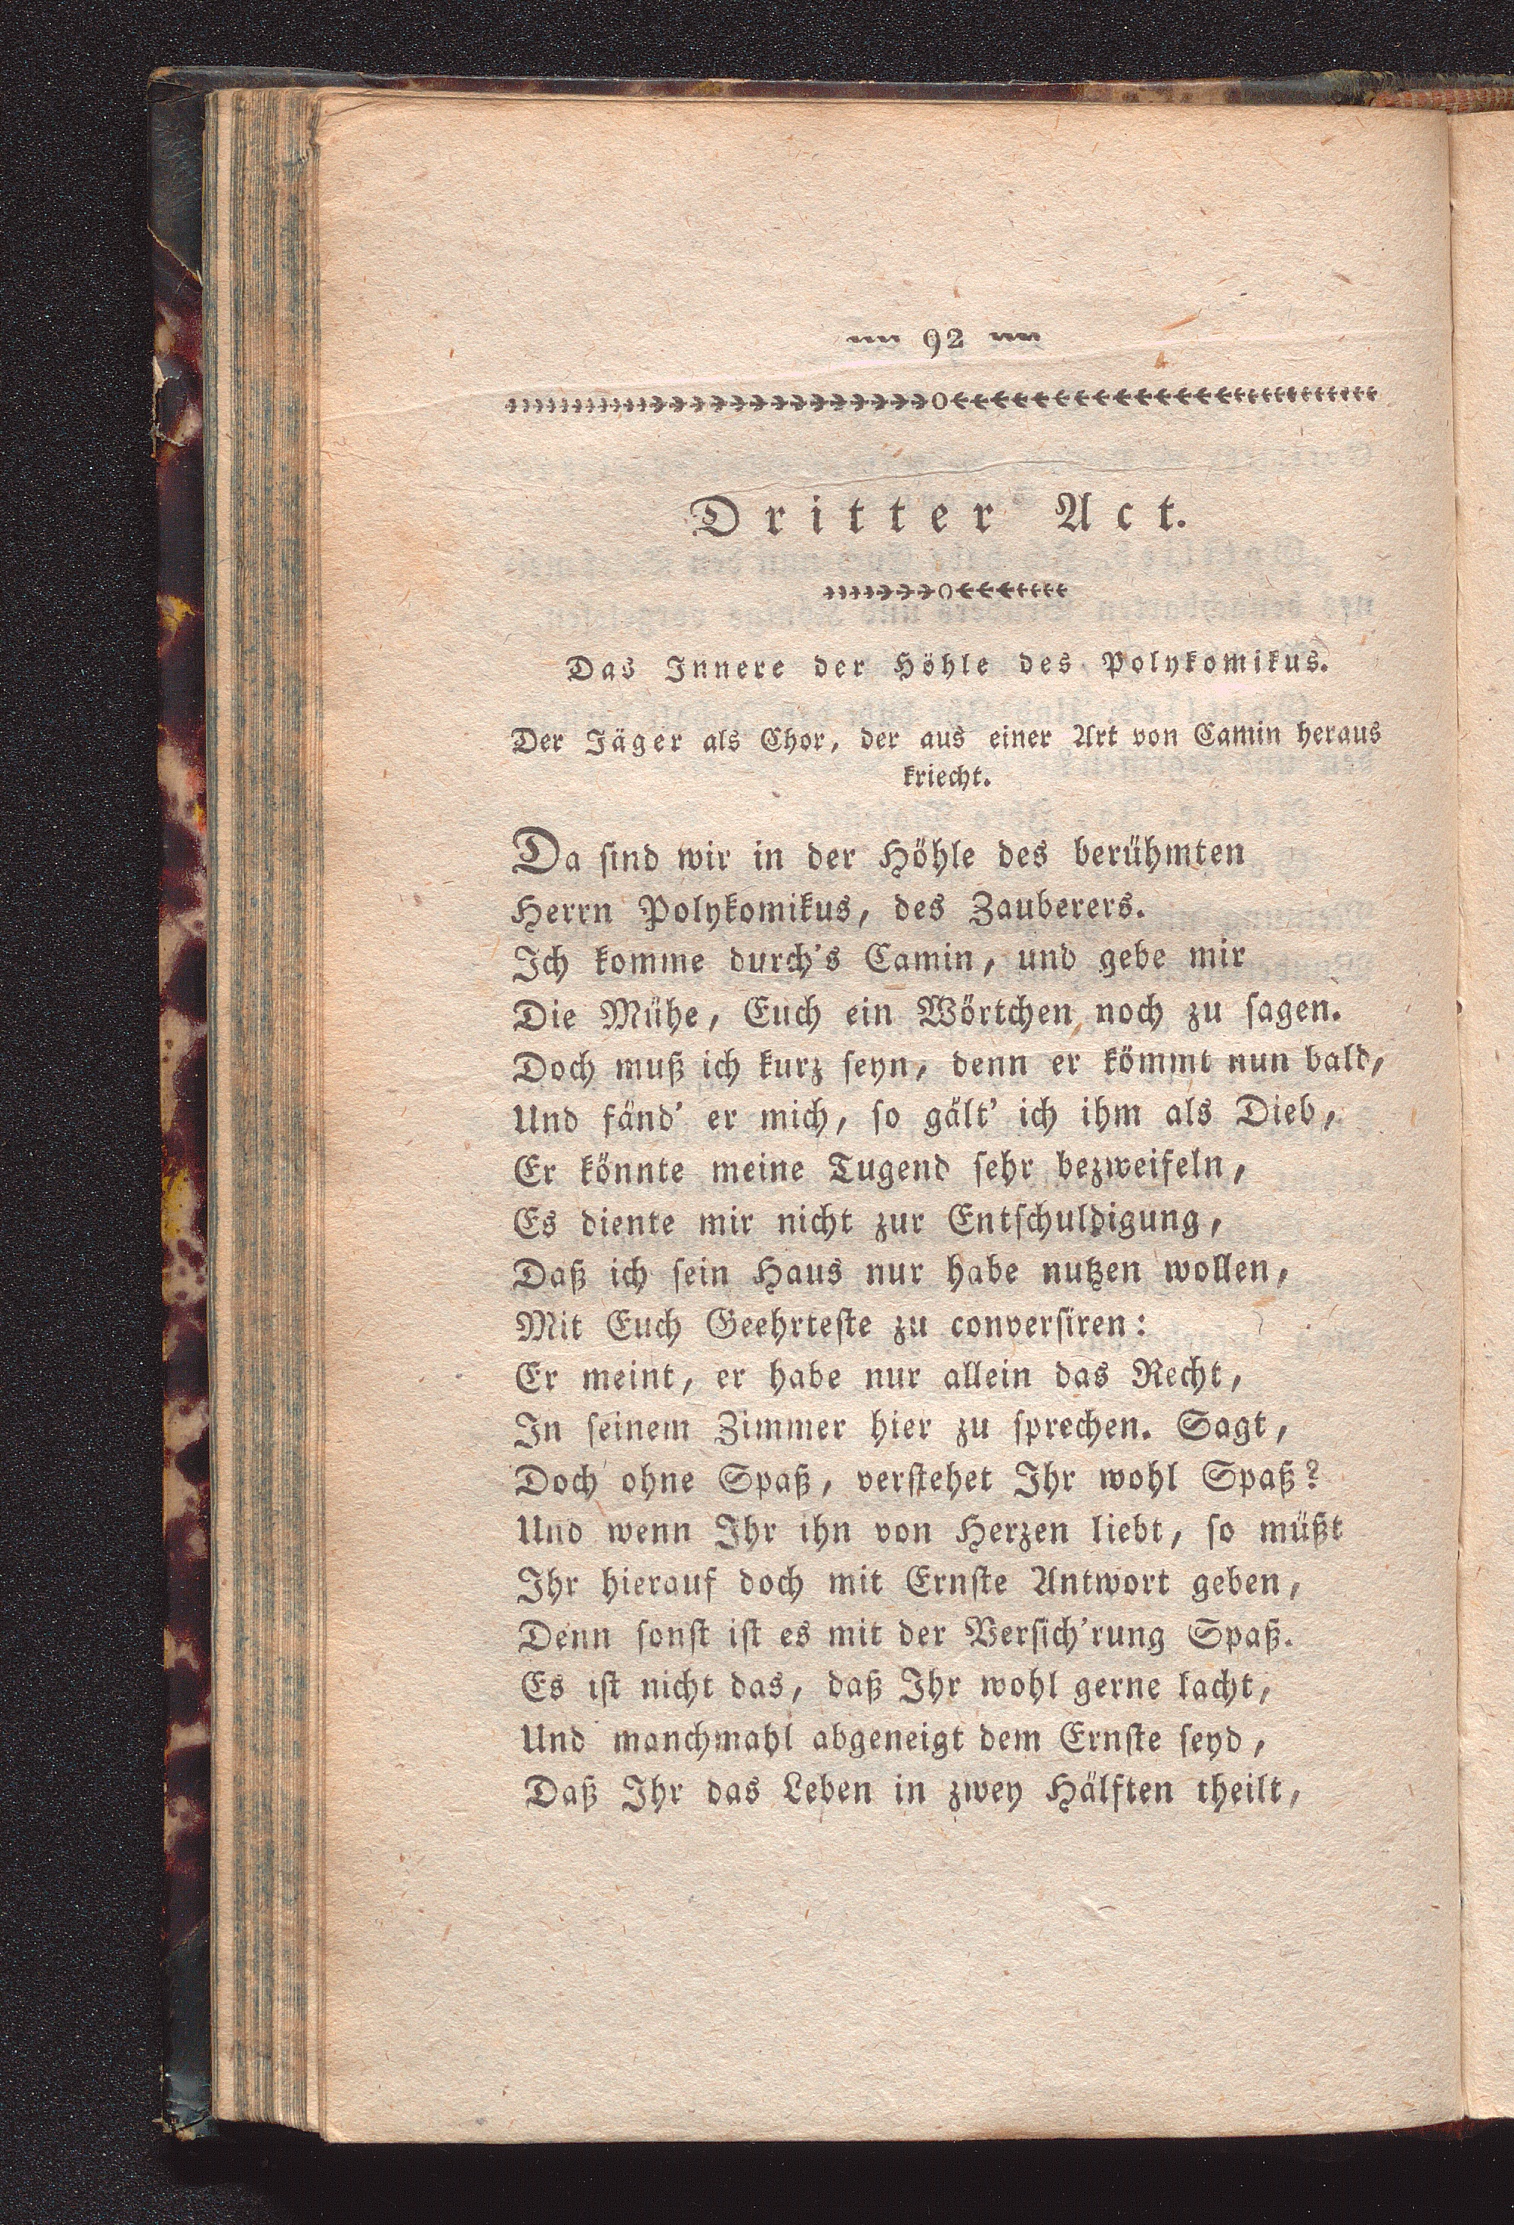 92
Dritter Act.
Das Innere der Höhle des Polykomikus.
Der Jäger als Chor, der aus einer Art von Camin heraus
kriecht.
Da sind wir in der Höhle des berühmten
Herrn Polykomikus, des Zauberers.
Ich komme durch's Camin, und gebe mir
Die Mühe, Euch ein Wörtchen noch zu sagen.
Doch muß ich kurz seyn, denn er kömmt nun bald,
Und fänd' er mich, so gält' ich ihm als Dieb,
Er könnte meine Tugend sehr bezweifeln,
Es diente mir nicht zur Entschuldigung,
Daß ich sein Haus nur habe nutzen wollen,
Mit Euch Geehrteste zu conversiren:
Er meint, er habe nur allein das Recht,
In seinem Zimmer hier zu sprechen. Sagt,
Doch ohne Spaß, verstehet Ihr wohl Spaß?
Und wenn Ihr ihn von Herzen liebt, so müßt
Ihr hierauf doch mit Ernste Antwort geben,
Denn sonst ist es mit der Versich'rung Spaß.
Es ist nicht das, daß Ihr wohl gerne lacht,
Und manchmahl abgeneigt dem Ernste seyd,
Daß Ihr das Leben in zwey Hälften theilt,